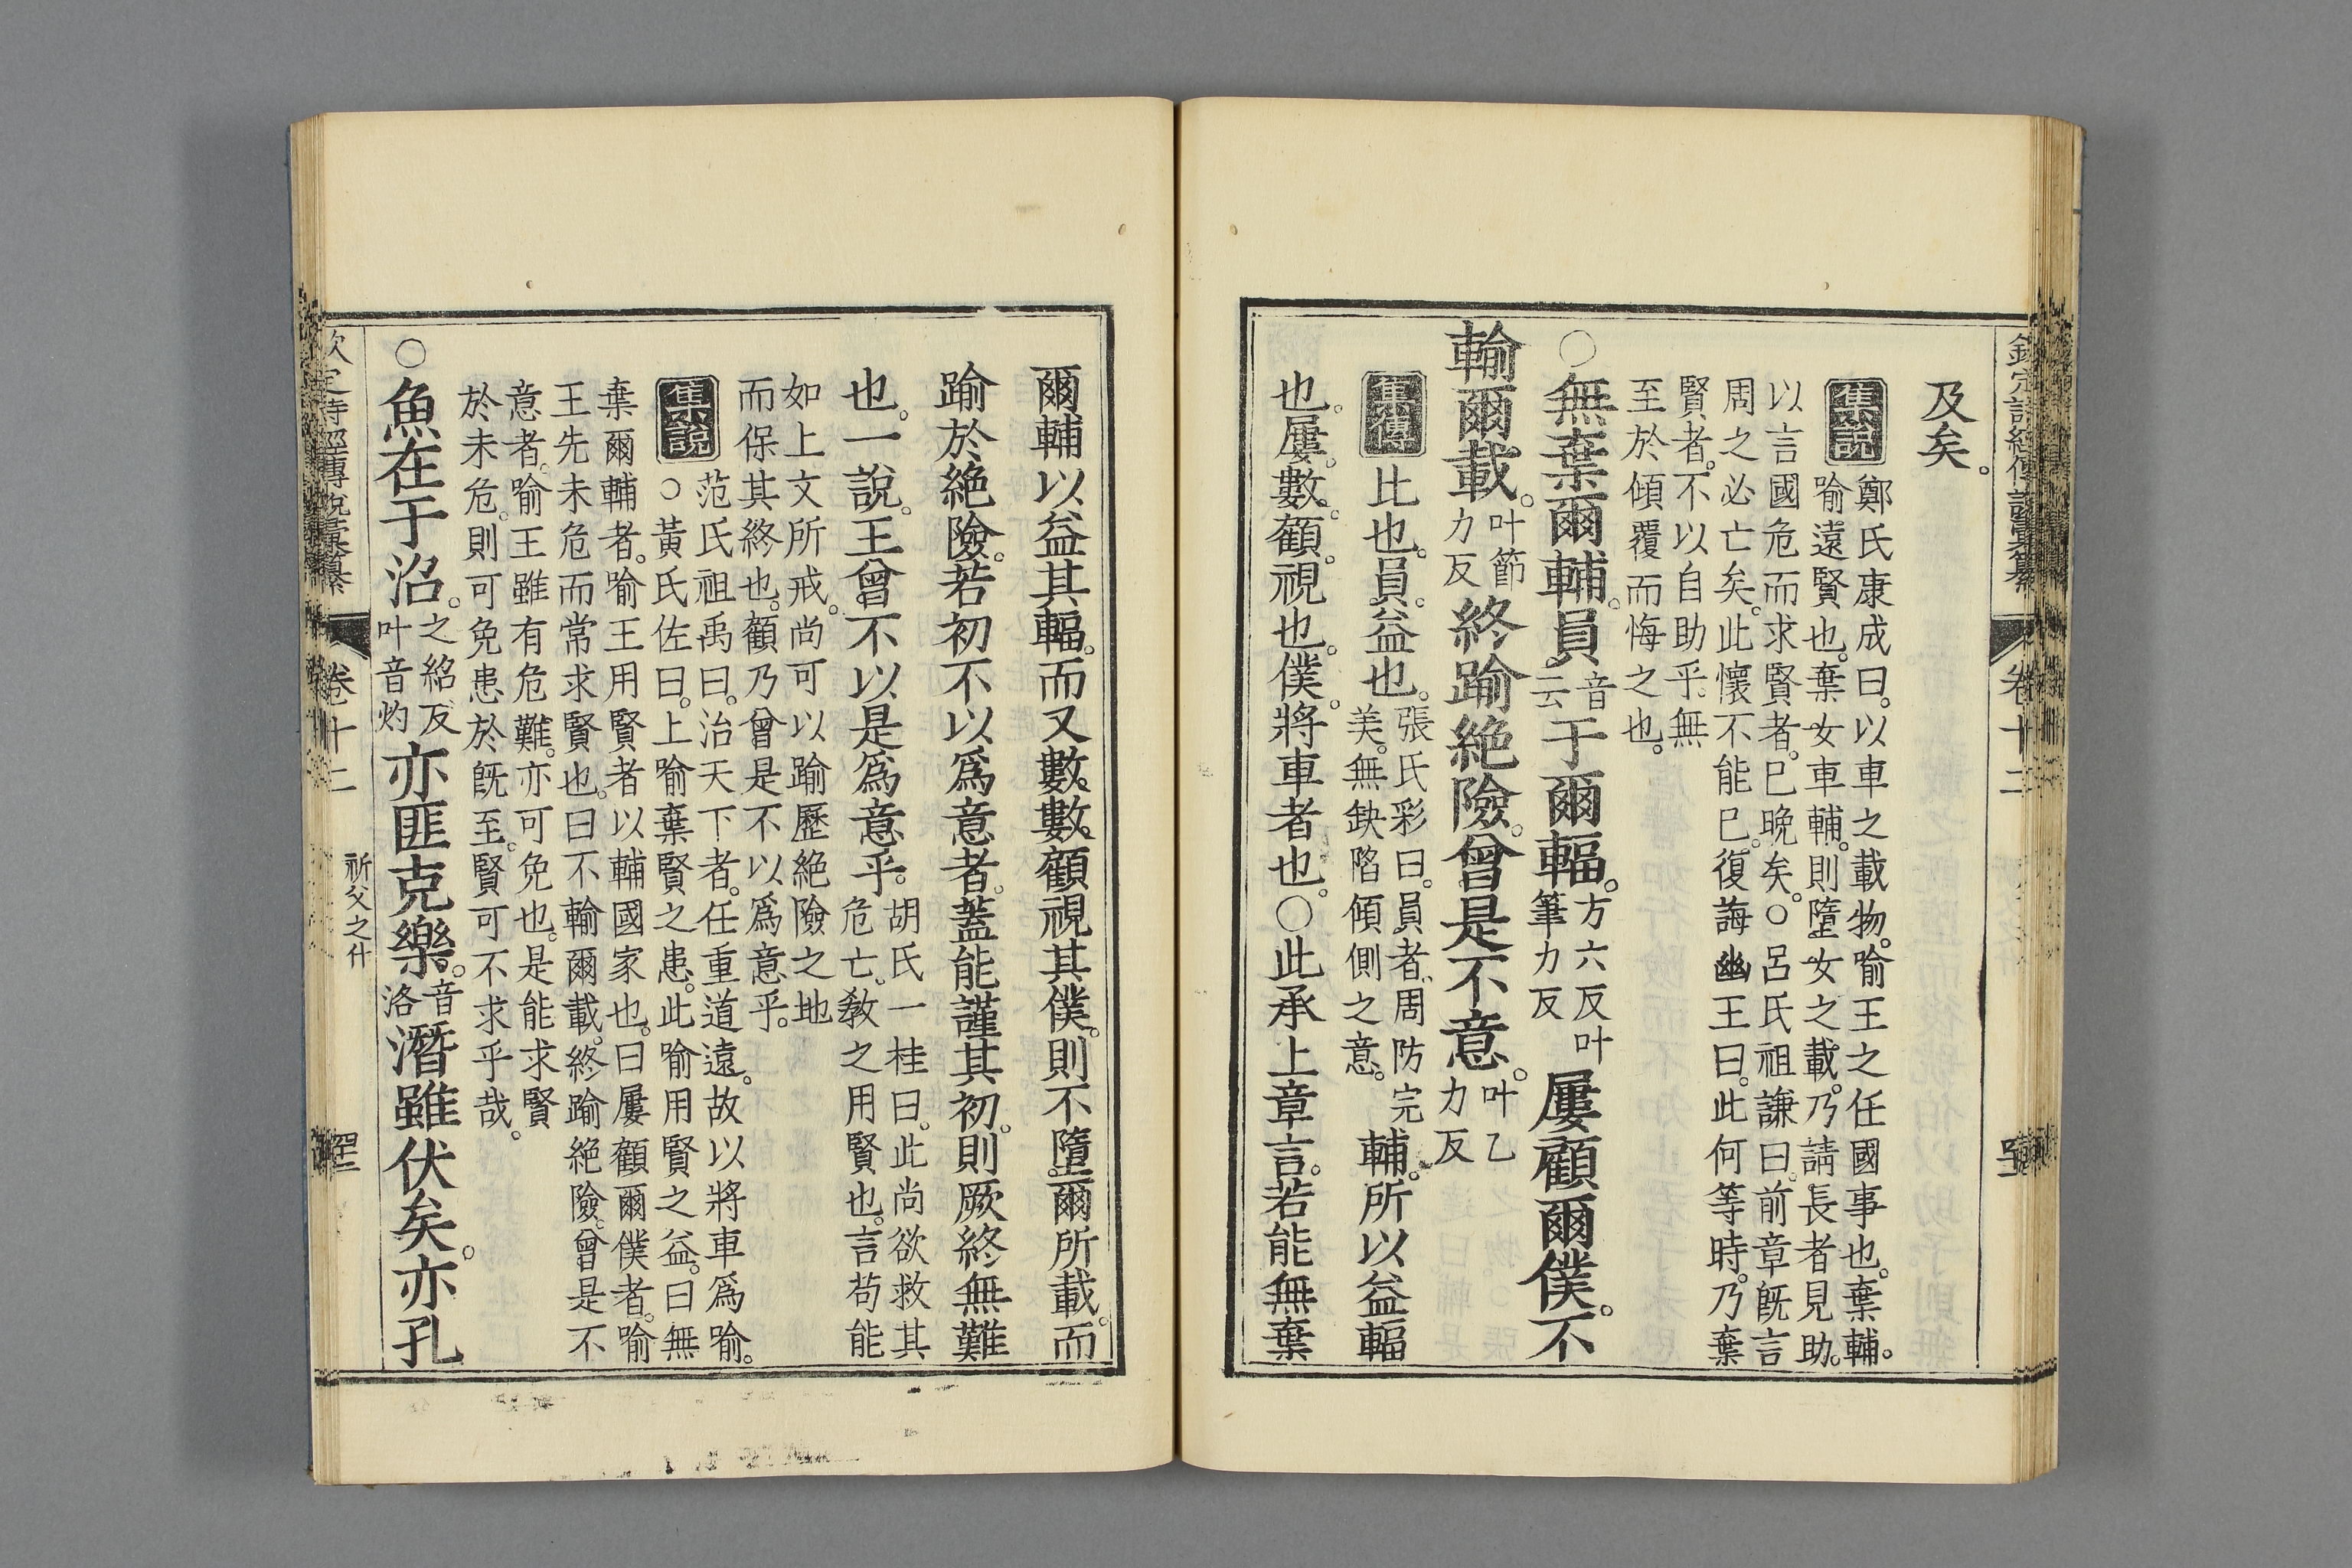 及矣。
集說
鄭氏康成曰。以車之載物。喻王之任國事也。棄輔。
喻遠賢也。棄女車輔。則墮女之載。乃請長者見助。
以言國危而求賢者。巳晚矣。○呂氏祖謙曰。前章旣言
周之必亡矣。此懷不能巳。復誨幽王曰。此何等時。乃棄
賢者。不以自助乎。無
至於傾覆而悔之也。
○無棄爾輔。員音云于爾輻。方六反叶筆力反屢顧爾僕。不
輸爾載。叶節力反終踰絕險。曾是不意。叶乙力反
集傳
比也。員。益也。張氏彩曰。員者。周防完美。無缺陷傾側之意。輔。所以益輻
也。屢。數。顧。視也。僕。將車者也。○此承上章言。若能無棄
爾輔以益其輻。而又數數顧視其僕。則不墮爾所載。而
踰於絕險。若初不以爲意者。蓋能謹其初。則厥終無難
也。一說。王曾不以是爲意乎。胡氏一桂曰。此尚欲救其危亡。敎之用賢也。言苟能
如上文所戒。尚可以踰歷絕險之地
而保其終也。顧乃曾是不以爲意乎。
集說
范氏祖禹曰。治天下者。任重道遠。故以將車爲喻。
○黃氏佐曰。上喻棄賢之患。此喻用賢之益。曰無
棄爾輔者。喻王用賢者以輔國家也。曰屢顧爾僕者。喻
王先未危而常求賢也。曰不輸爾載。終踰絕險。曾是不
意者。喻王雖有危難。亦可免也。是能求賢
於未危。則可免患於旣至。賢可不求乎哉。
○魚在于沼。之紹反叶音灼亦匪克樂。音洛潛雖伏矣。亦孔
欽定詩經傳說彙纂
卷十二
祈父之什